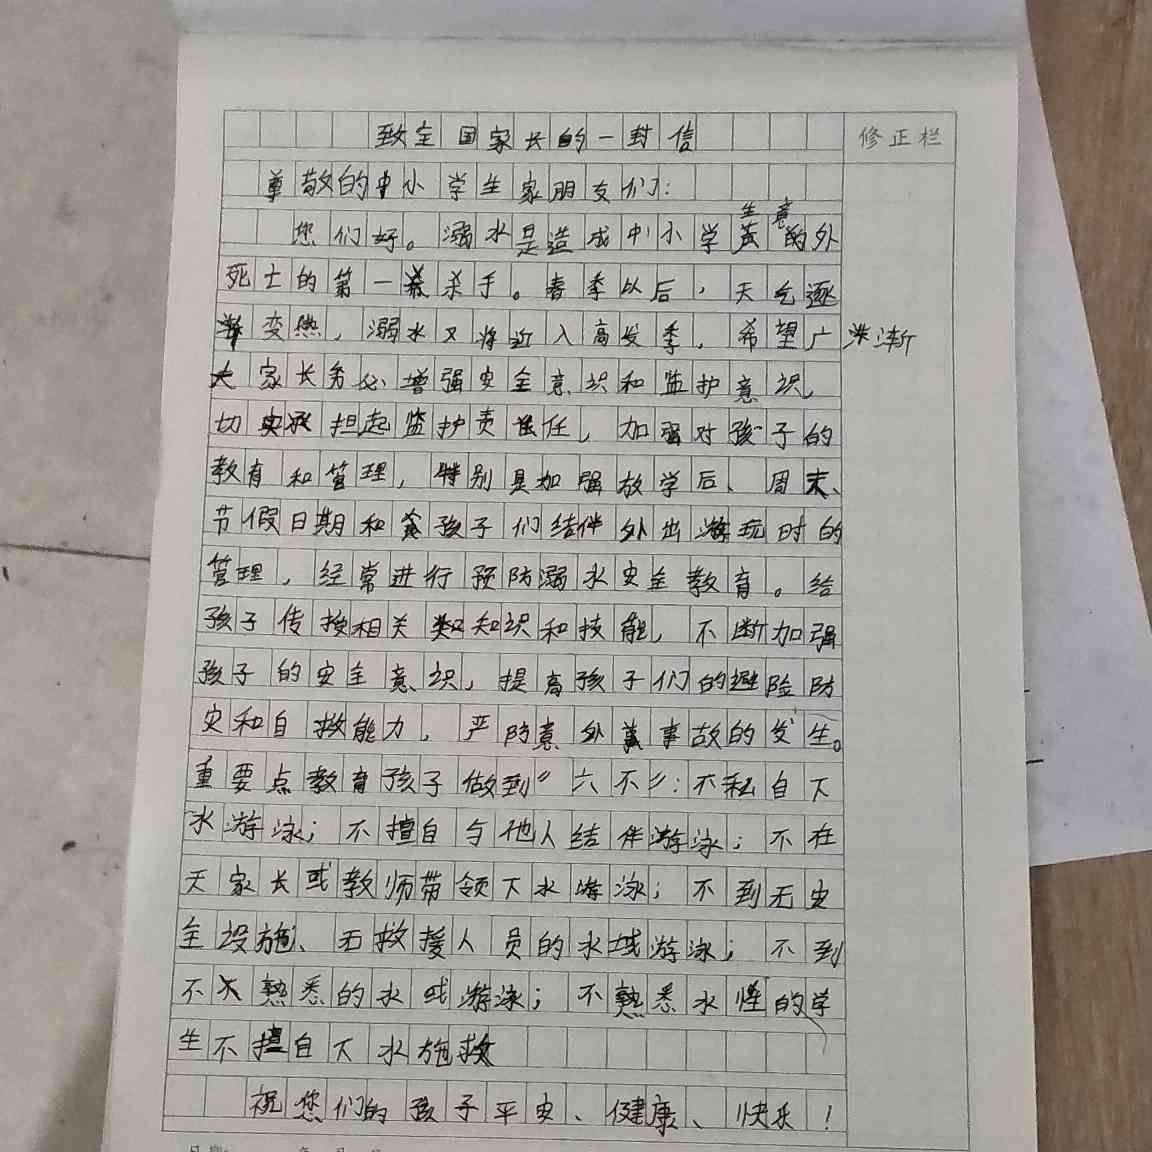 致全国家长的一封信
修正栏
尊敬的中小学生家朋友们：
您们好。溺水是造成中小学生意的外
死士的第一杀手。春季以后，天气逐
变热，溺水又将近入高发季，希望广
渐
大家长务必增强安全意识和监护意识，
切实承担起监护责任，加强对孩子的
教育和管理，特别是加强放学后、周末、
节假日期和孩子们结伴外出游玩时的
管理，经常进行预防溺水安全教育。给
孩子传授相关知识和技能，不断加强
孩子的安全意识，提高孩子们的避险防
灾和自救能力，严防意外事故的发生。
重要点教育孩子做到“六不”：不私自下
水游泳；不擅自与他人结伴游泳；不在
无家长或教师带领下水游泳；不到无安
全设施、无救援人员的水域游泳；不到
不熟悉的水域游泳；不熟悉水性的学
生不擅自下水施救
祝您们的孩子平安、健康、快乐！